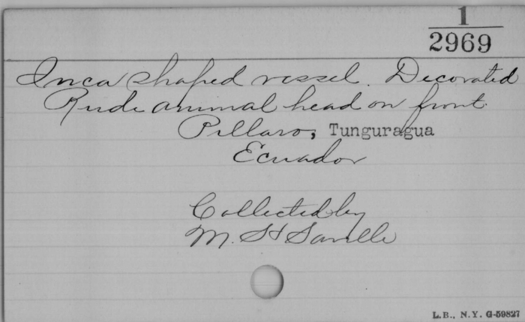 1
2969
Inca shaped vessel. Decorated
Rude animal head on front
Pillaro, Tunguragua
Ecuador
Collected by
M. H Saville
L.B., N.Y. G-59827